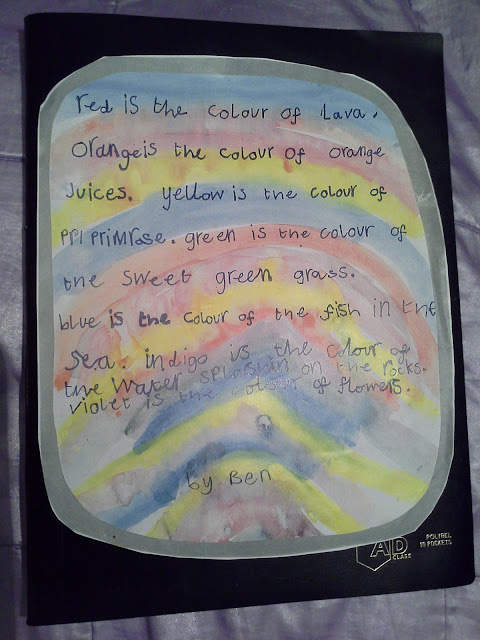 red is the colour of lava.
Orangeis the colour of orange
Juices. yellow is the colour of
PPI PriMrose. green is the colour of
the Sweet green grass.
blue is the colour of the fish in the
Sea. indigo is the colour of
the Water Splashin on the rocks.
violet is the colour of flowers.
by Ben
AD
CLASS
POLYREL
10 POCKETS